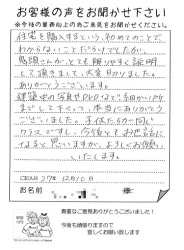 お客様の声をお聞かせ下さい
※今後の業務向上の為ご意見をお聞かせください。
住宅を購入するという、初めてのことで
わからないことだらけでしたが、
馬頭さんがとても解りやすく説明
して頂きまして、大変助かりまし
た。ありがとうございます。
建築中の写真やDVDなど、細かい所
までして下さって、本当にありがとう
ございました。子供たちの同じ
クラスですし、今後とも お世話に
なると思いますが、よろしくお願い
いたします。
ご記入日 27年 12月10日
お名前 様
貴重なご意見ありがとうございました！
今後も頑張りますので
宜しくお願い致します